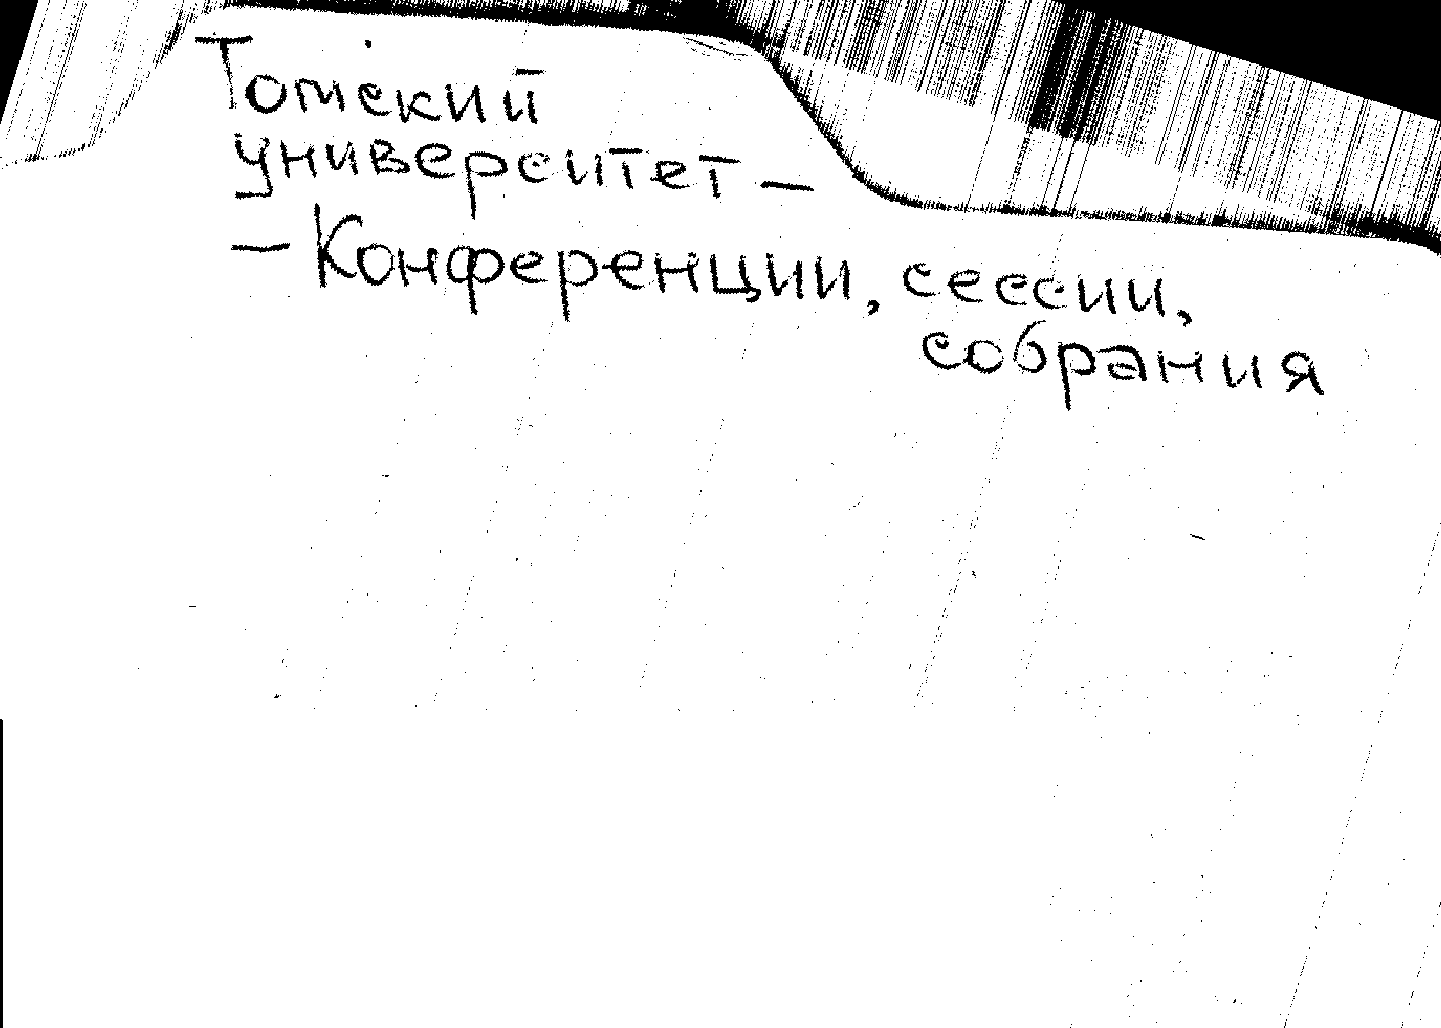 Томский
университет —
— Конференции, сессии,
собрания